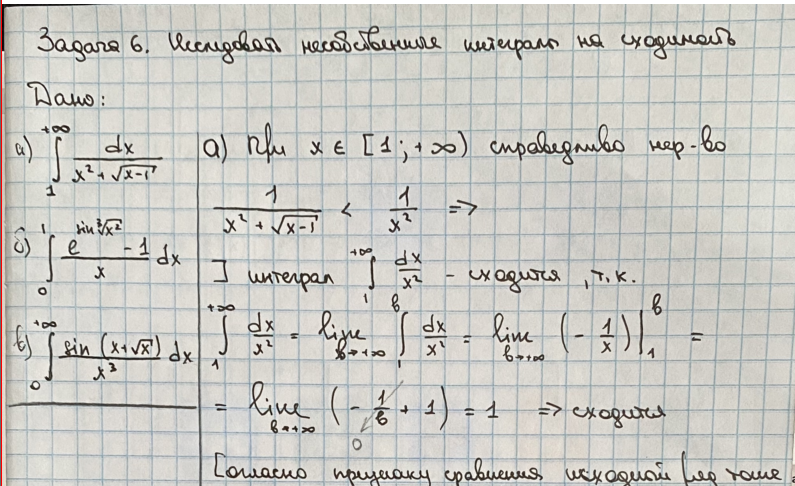 Задача 6. Исследовать несобственные интегралы на сходимость
Дано:
а) ∫₁^{+∞} dx / (x² + √(x-1))
б) ∫₀^1 (e^{sin ∛(x²)} - 1) / x dx
в) ∫₀^{+∞} sin (x+√x) / x³ dx
а) При x ∈ [1; +∞) справедливо нер-во
1 / (x² + √(x-1)) < 1 / x² =>
] интеграл ∫₁^{+∞} dx / x² - сходится, т.к.
∫₁^{+∞} dx / x² = lim_{b→+∞} ∫₁^b dx / x² = lim_{b→+∞} (- 1/x) |₁^b =
= lim_{b→+∞} (- 1/b + 1) = 1 => сходится
0
Согласно признаку сравнения исходной ряд тоже